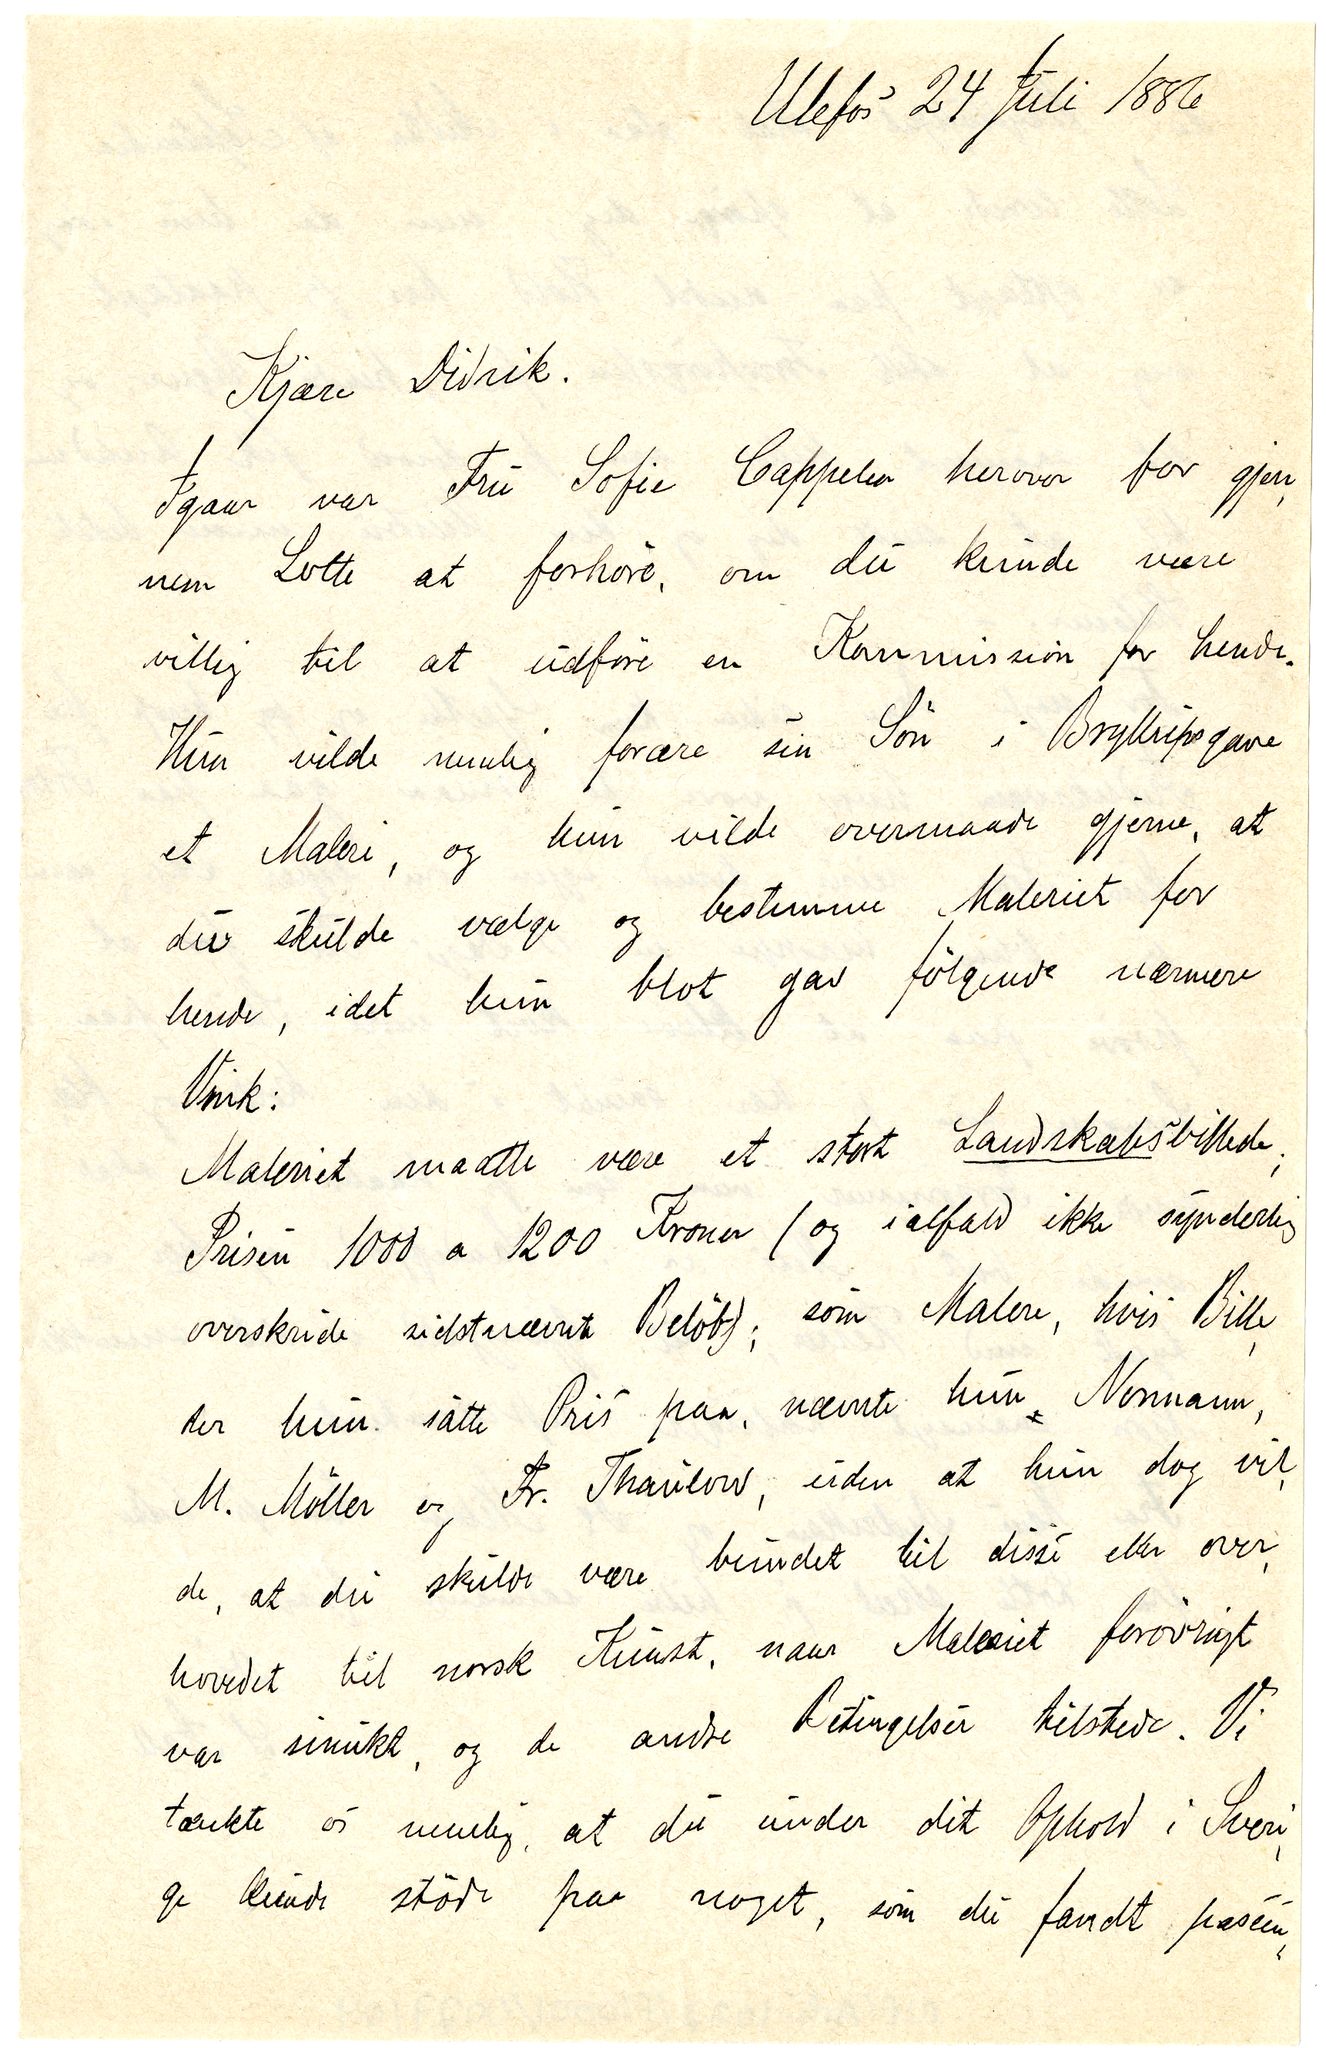 Ulefos 24 Juli 1886
Kjære Didrik.
Igaar var Fru Sofie Cappelen herover for gjen,
nem Lotte at forhöre, om du kunde være
villig til at udföre en Kommission for hende.
Hun vilde nemlig forære sin Sön i Bryllupsgave
et Maleri, og hun vilde overmaade gjerne, at
du skulde vælge og bestemme Maleriet for
hende, idet hun blot gav fölgende nærmere
Vink:
Maleriet maatte være et stort Landskabsbillede;
Prisen 1000 a 1200 Kroner (og ialfald ikke synderlig
overskride sidstnævnte Belöb); som Malere, hvis Bille,
der hun satte Pris paa, nævnte hun Normann,
M. Möller og Fr. Thaulow, uden at hun dog vil,
de, at du skulde være bundet til disse eller over,
hovedet til norsk Kunst, naar Maleriet forövrigt
var smukt, og de andre Betingelser tilstede. Vi
tænkte os nemlig, at du under dit Ophold i Sveri,
ge kunde støde paa noget, som du fandt passen,